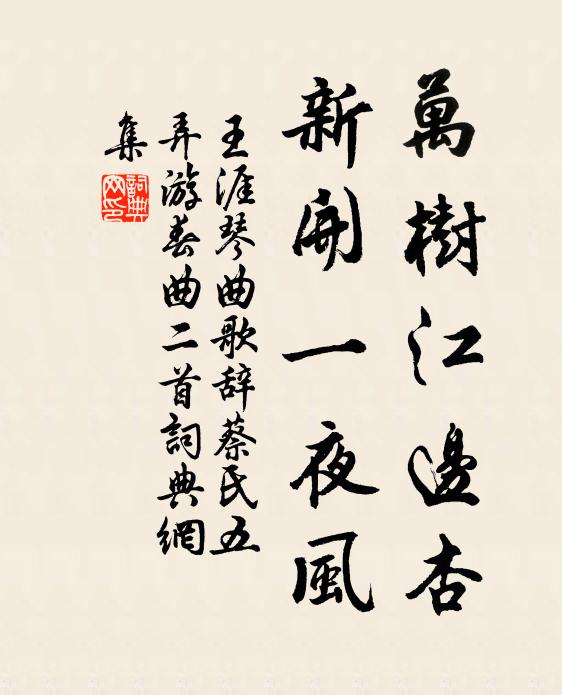 萬樹江邊杏
新開一夜風
王涯琴曲歌辞蔡氏五
弄游春曲二首詞典網
集
詞典
网印